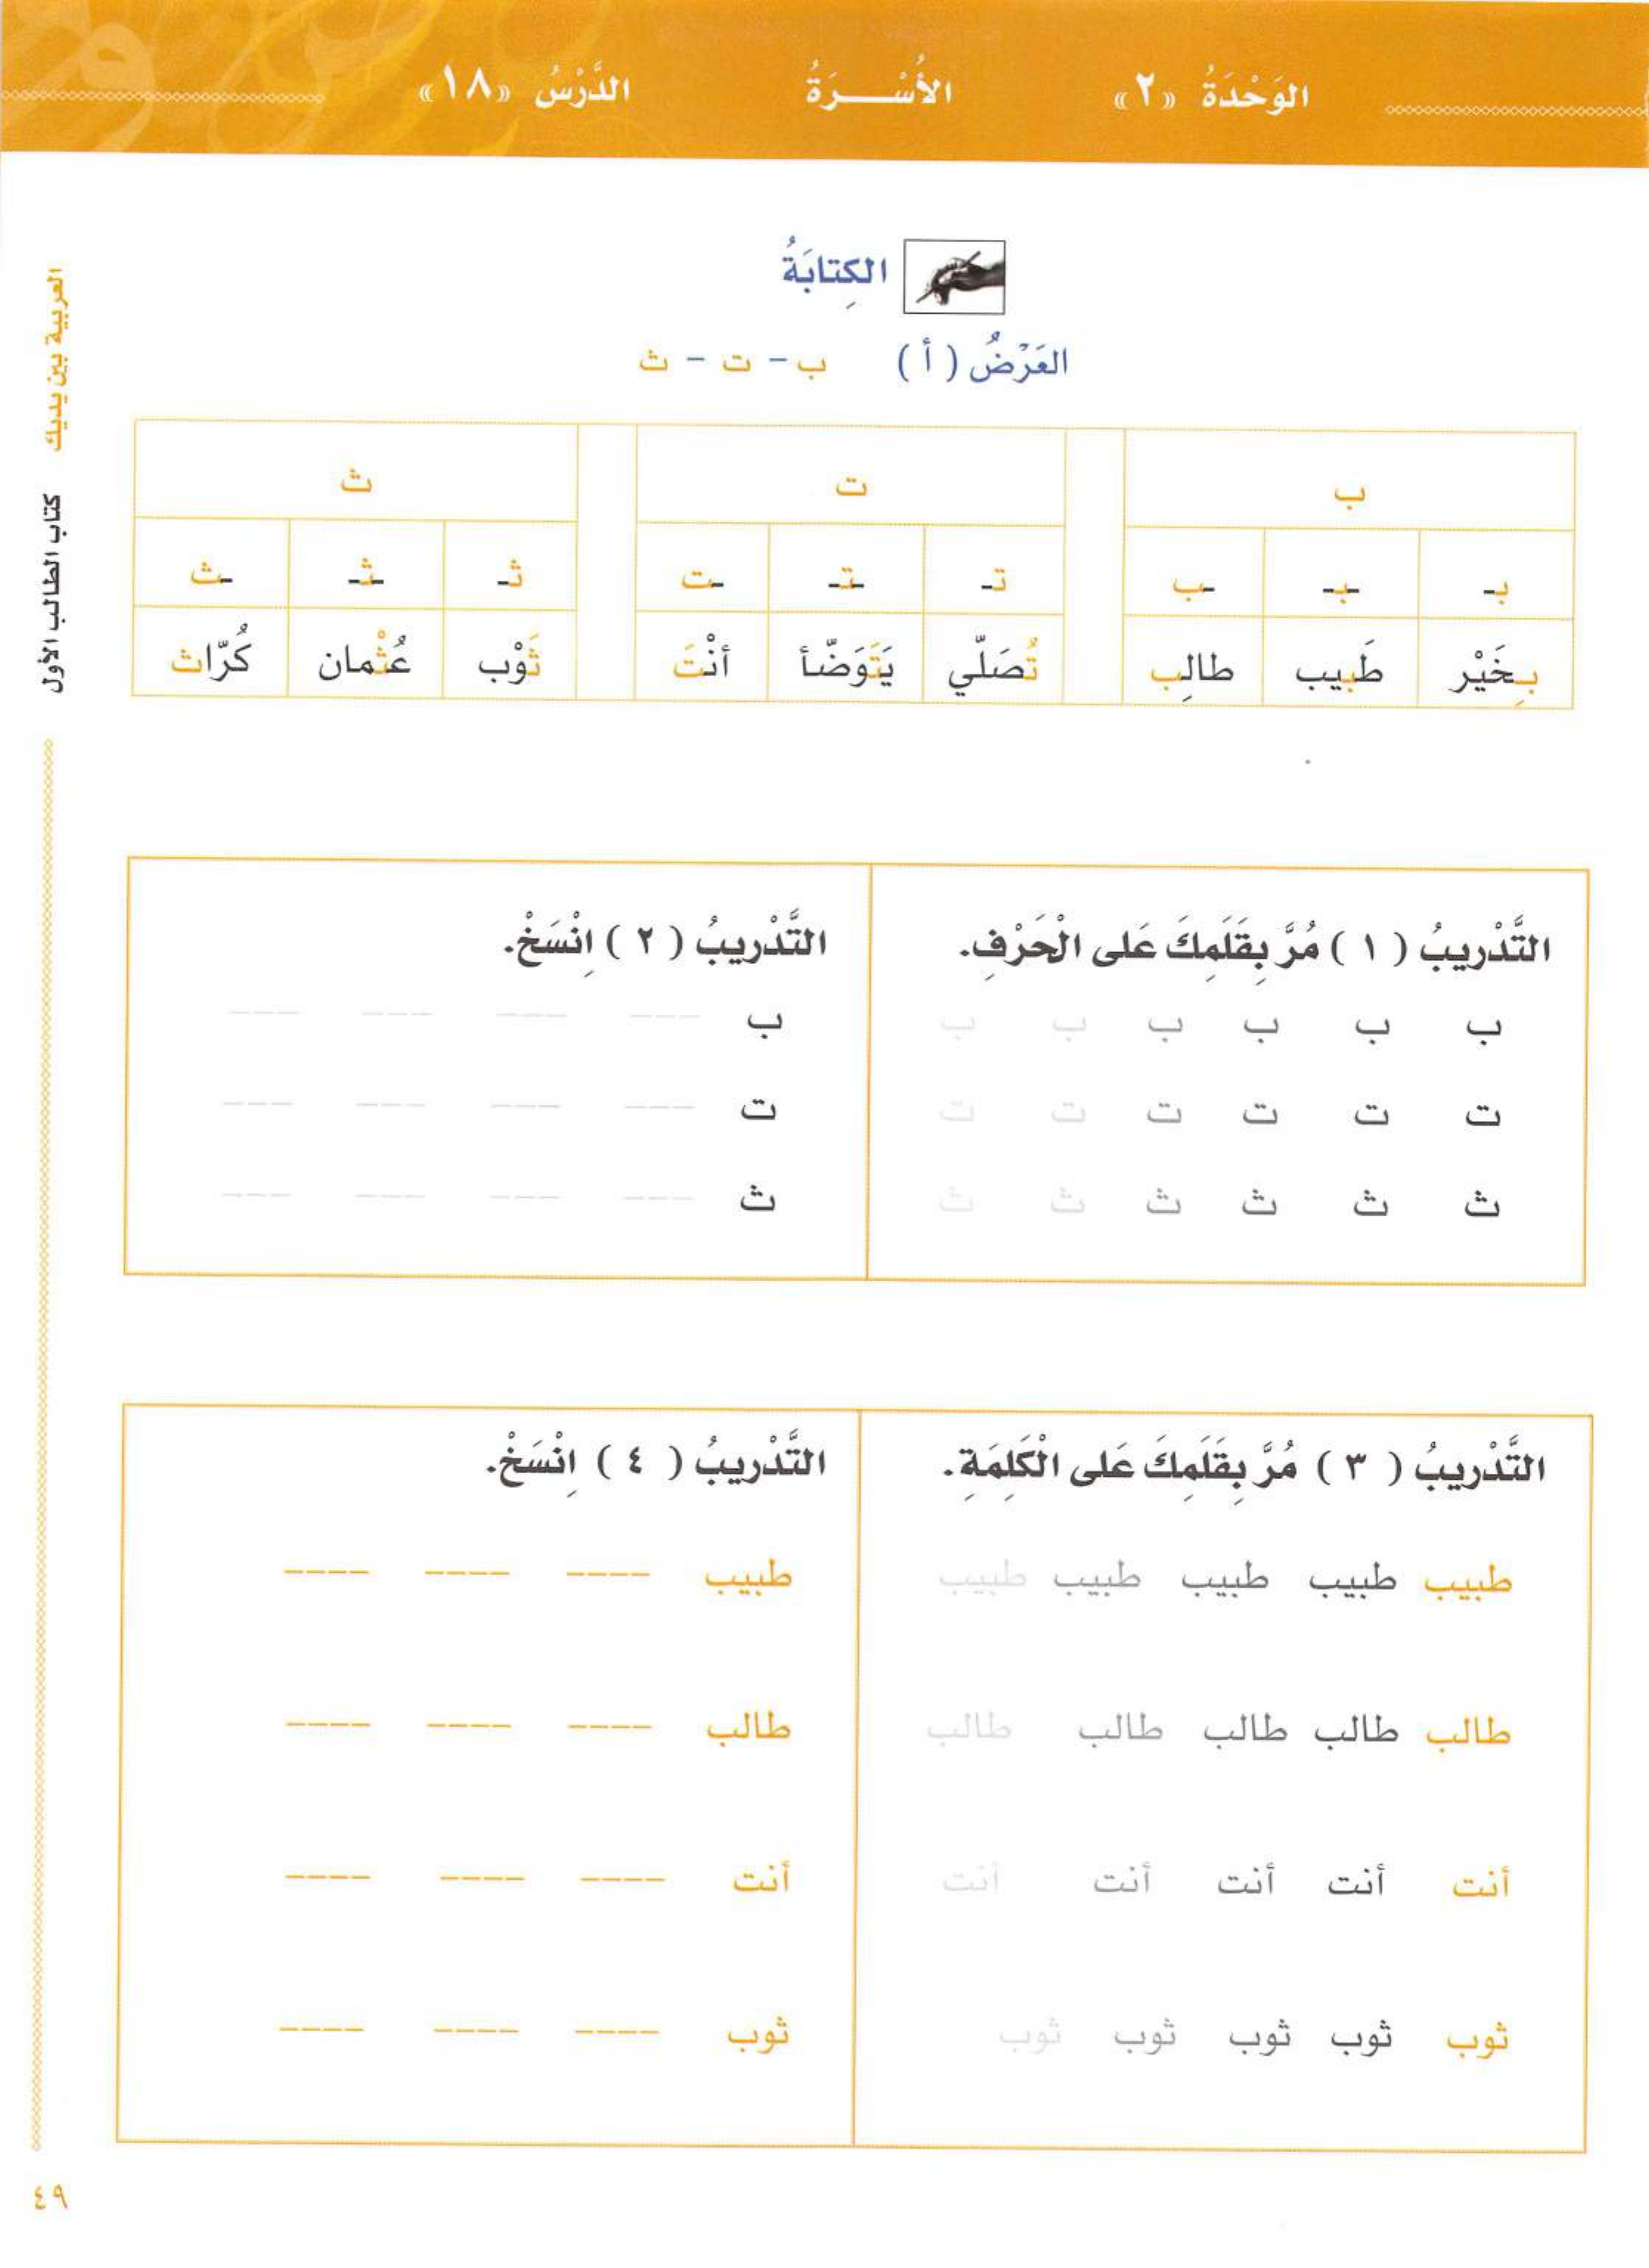 الوَحْدَةُ «٢» الأُسْـــرَةُ الدَّرْسُ «١٨»
الكِتابَةُ
العَرْضُ ( أ ) ب - ت - ث
ب ت ث
بـ ـبـ ـب تـ ـتـ ـت ثـ ـثـ ـث
بِخَيْر طَبيب طالِب تُصَلّي يَتَوَضّأ أنْتَ ثَوْب عُثْمان كُرّاث
التَّدْريبُ ( ١ ) مُرَّ بِقَلَمِكَ عَلى الْحَرْفِ.
ب ب ب ب ب ب
ت ت ت ت ت ت
ث ث ث ث ث ث
التَّدْريبُ ( ٢ ) اِنْسَخْ.
ب --- --- --- ---
ت --- --- --- ---
ث --- --- --- ---
التَّدْريبُ ( ٣ ) مُرَّ بِقَلَمِكَ عَلى الْكَلِمَةِ.
طبيب طبيب طبيب طبيب طبيب
طالب طالب طالب طالب طالب
أنت أنت أنت أنت أنت
ثوب ثوب ثوب ثوب ثوب
التَّدْريبُ ( ٤ ) اِنْسَخْ.
طبيب ---- ---- ----
طالب ---- ---- ----
أنت ---- ---- ----
ثوب ---- ---- ----
العربية بين يديك كتاب الطالب الأول
٤٩